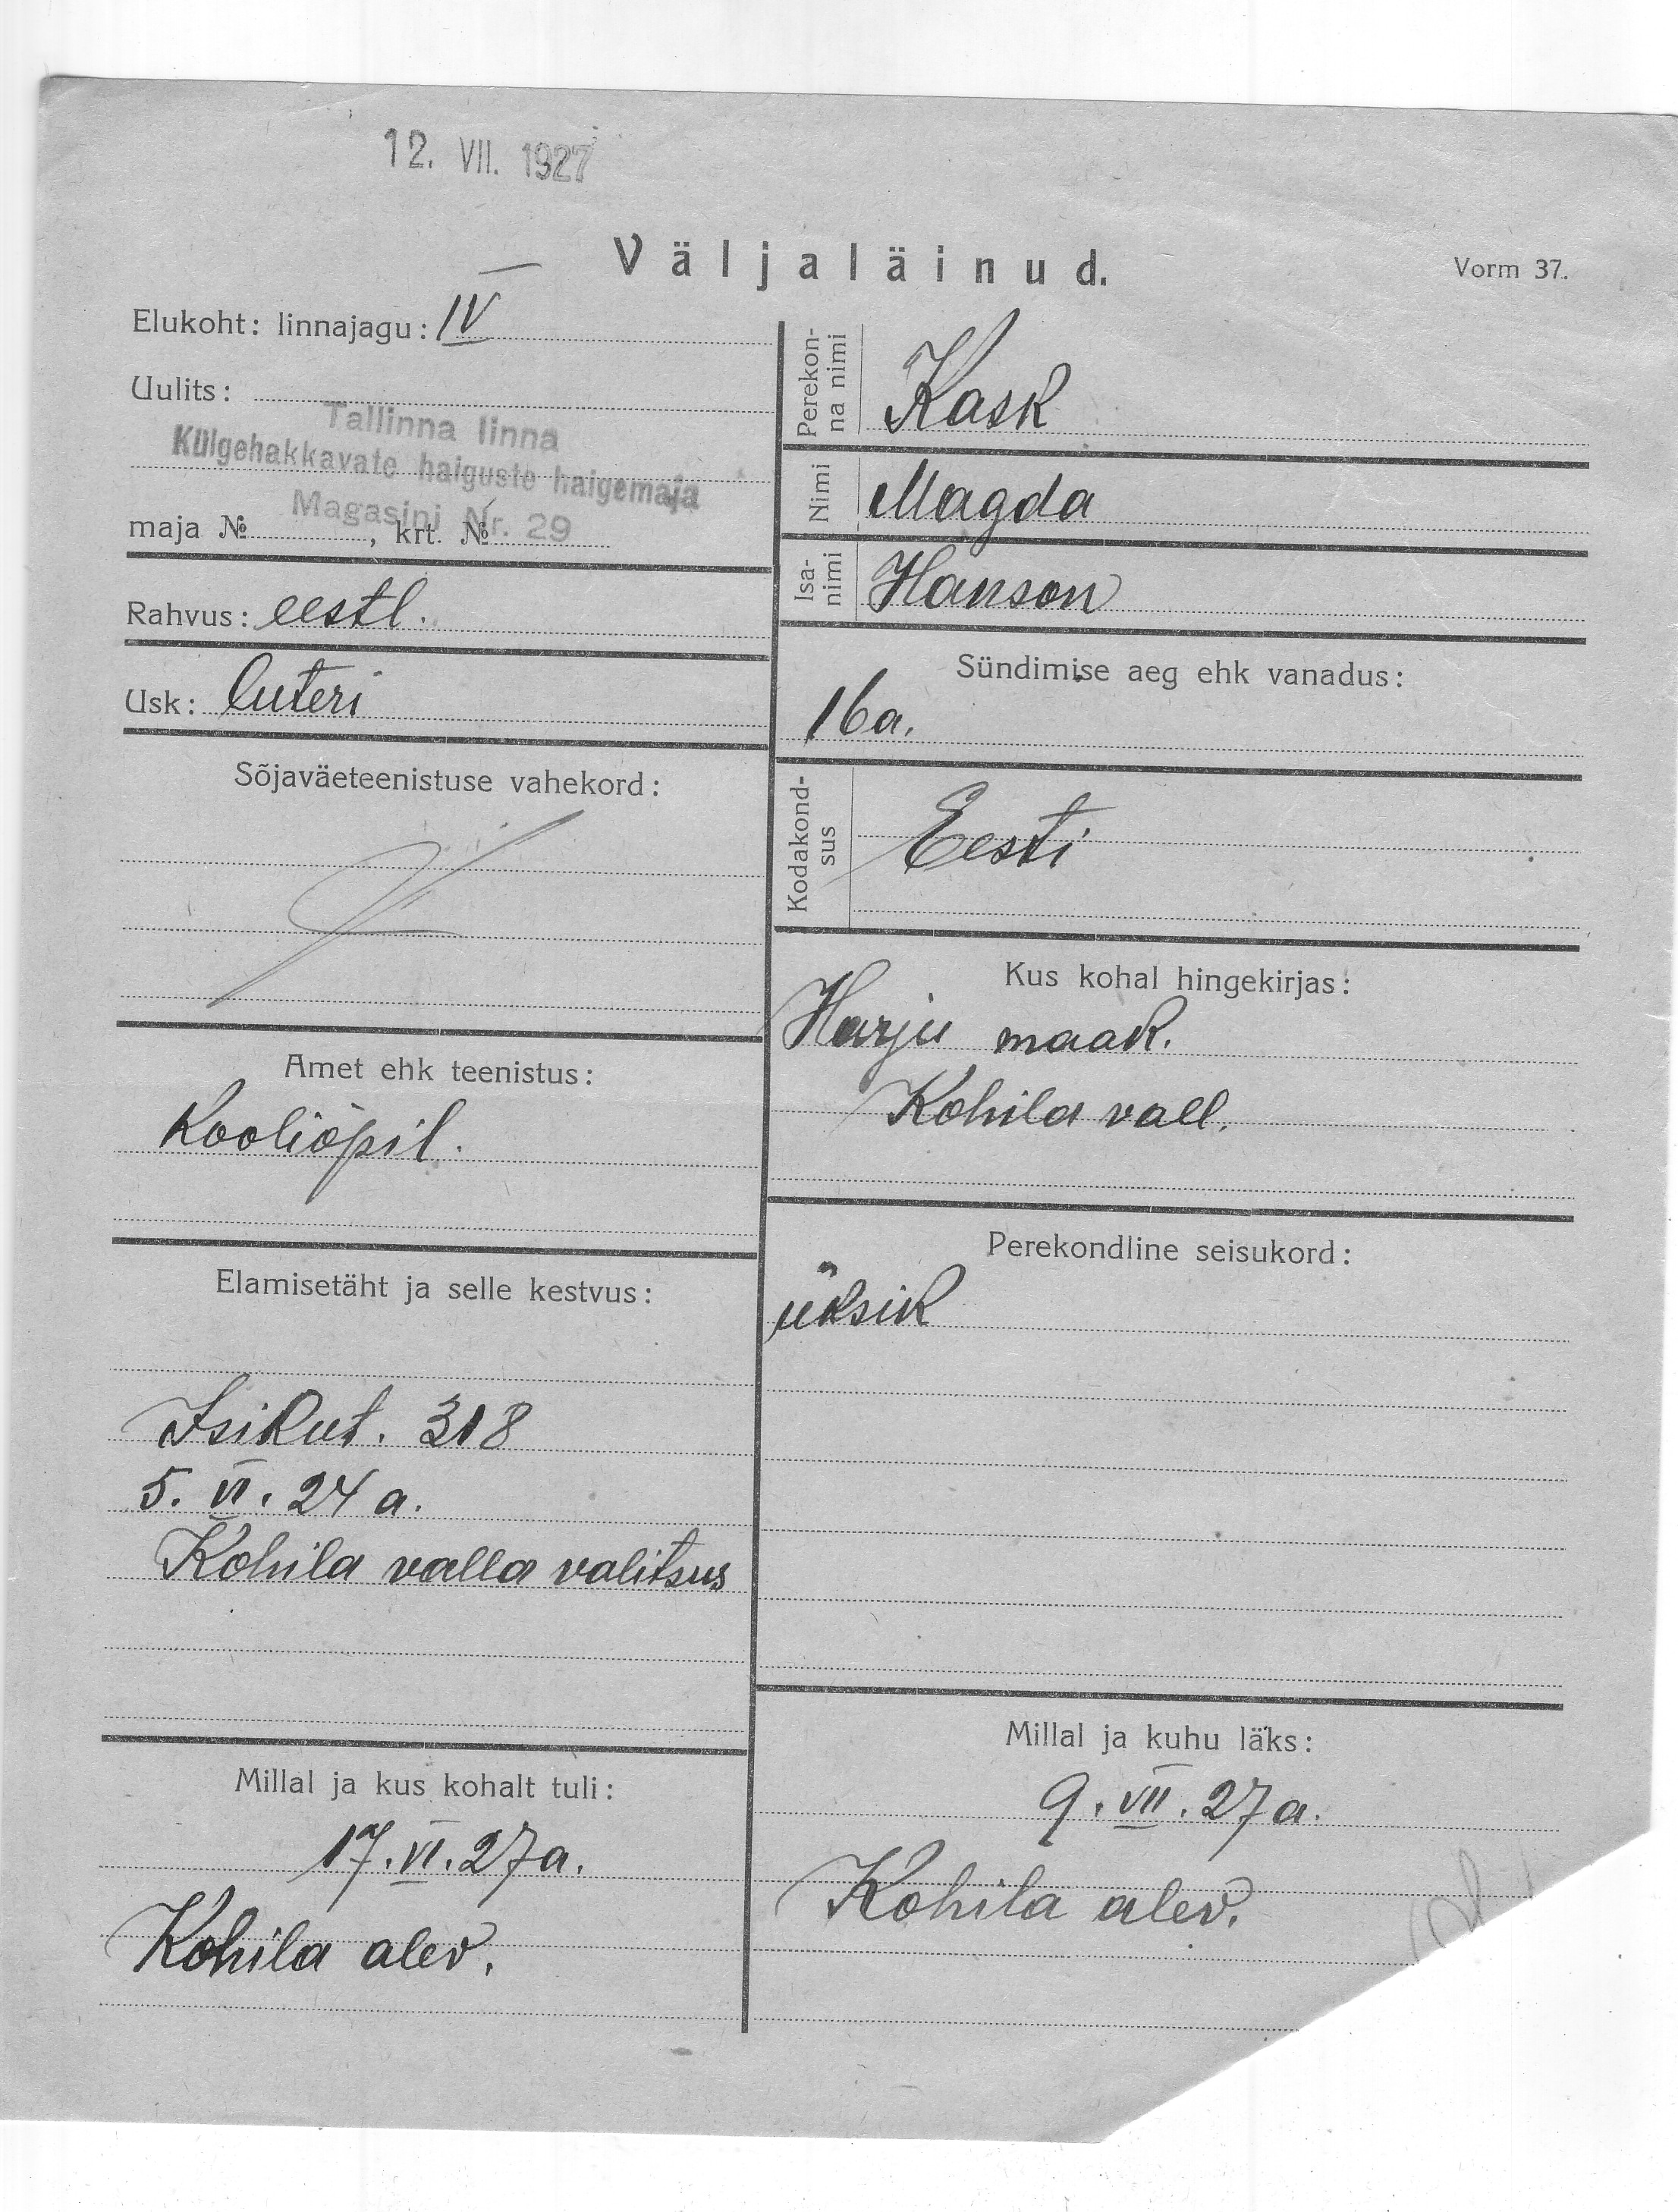 12. VII. 1927
Väljaläinud.
Vorm 37.
Elukoht: linnajagu: IV
Uulits:
Tallinna linna
Külgehakkavate haiguste haigemaja
Magasini Nr. 29
maja №, krt. №
Rahvus: eestl.
Usk: luteri
Sõjaväeteenistuse vahekord:
Amet ehk teenistus:
Kooliõpil.
Elamisetäht ja selle kestvus:
Isikut. 318
5. VI. 24 a.
Kohila valla valitsus
Millal ja kus kohalt tuli:
17. VI. 27 a.
Kohila alev.
Perekonna nimi
Kask
Nimi
Magda
Isa-
nimi
Hanson
Sündimise aeg ehk vanadus:
16 a.
Kodakond-
sus
Eesti
Kus kohal hingekirjas:
Harju maak.
Kohila vall.
Perekondline seisukord:
üksik
Millal ja kuhu läks:
9. VII. 27 a.
Kohila alev.